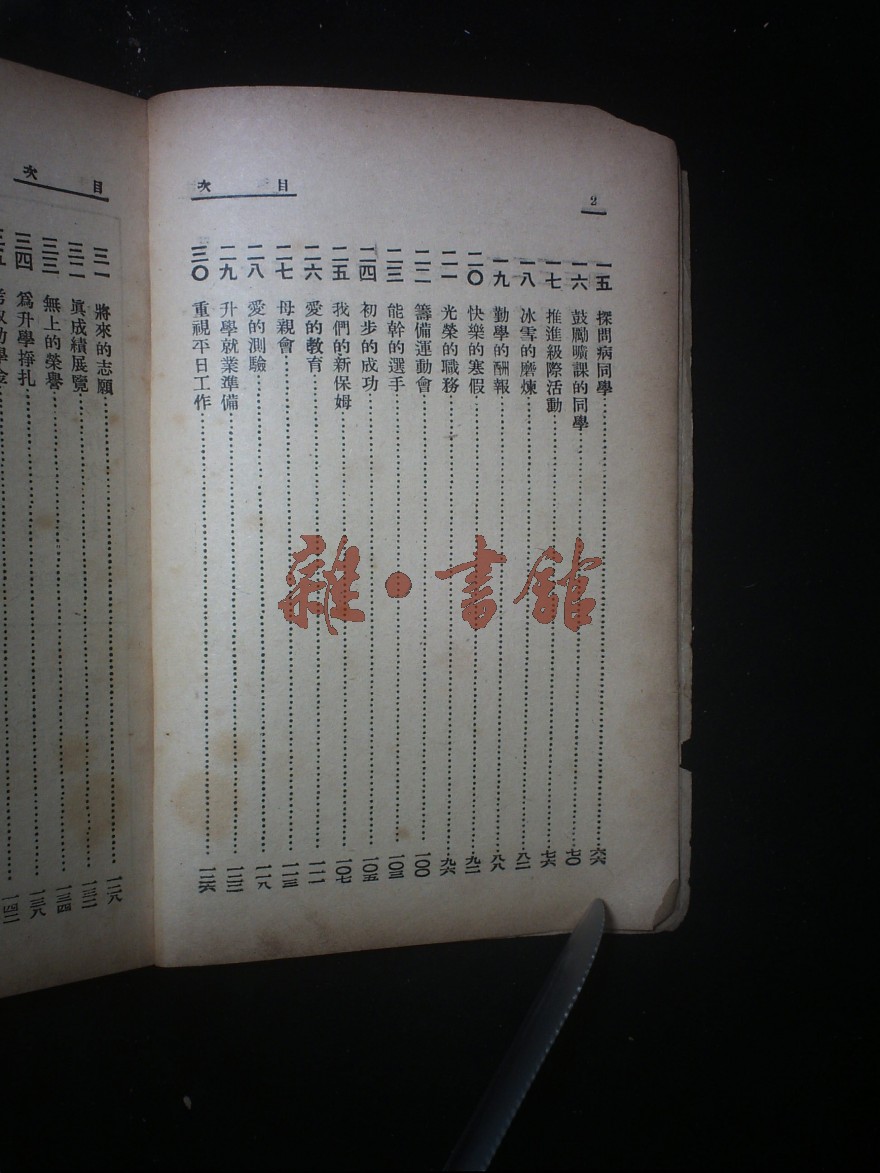 2
目次
一五 探問病同學 六六
一六 鼓勵曠課的同學 七〇
一七 推進級際活動 七六
一八 冰雪的磨煉 八二
一九 勤學的酬報 八八
二〇 快樂的寒假 九二
二一 光榮的職務 九六
二二 籌備運動會 一〇〇
二三 能幹的選手 一〇三
二四 初步的成功 一〇五
二五 我們的新保姆 一〇七
二六 愛的教育 一一一
二七 母親會 一一三
二八 愛的測驗 一一八
二九 升學就業準備 一二二
三〇 重視平日工作 一二六
目次
三一 將來的志願 一二八
三二 眞成績展覽 一三二
三三 無上的榮譽 一三四
三四 爲升學掙扎 一三八
三五 考取助學金 一四二
雜·書館